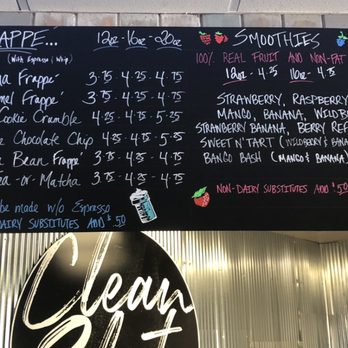 APPE... 12oz - 16oz - 20oz
(With Espresso & Whip)
a Frappé 3.75 4.25 4.75
mel Frappé 3.75 4.25 4.75
Cookie Crumble 4.25 4.75 5.25
Chocolate Chip 4.25 4.75 5.25
Bean Frappé 3.75 4.25 4.75
ea -or- Matcha 3.75 4.25 4.75
be made w/o Espresso
DAIRY SUBSTITUTES ADD $.50
SMOOTHIES
100% REAL FRUIT AND NON-FAT
12oz - 4.25 16oz - 4.75
STRAWBERRY, RASPBERRY
MANGO, BANANA, WILDB
STRAWBERRY BANANA, BERRY REF
SWEET N' TART (WILDBERRY & BANANA
BANGO BASH (MANGO & BANANA)
NON-DAIRY SUBSTITUTES ADD $.50
Clean